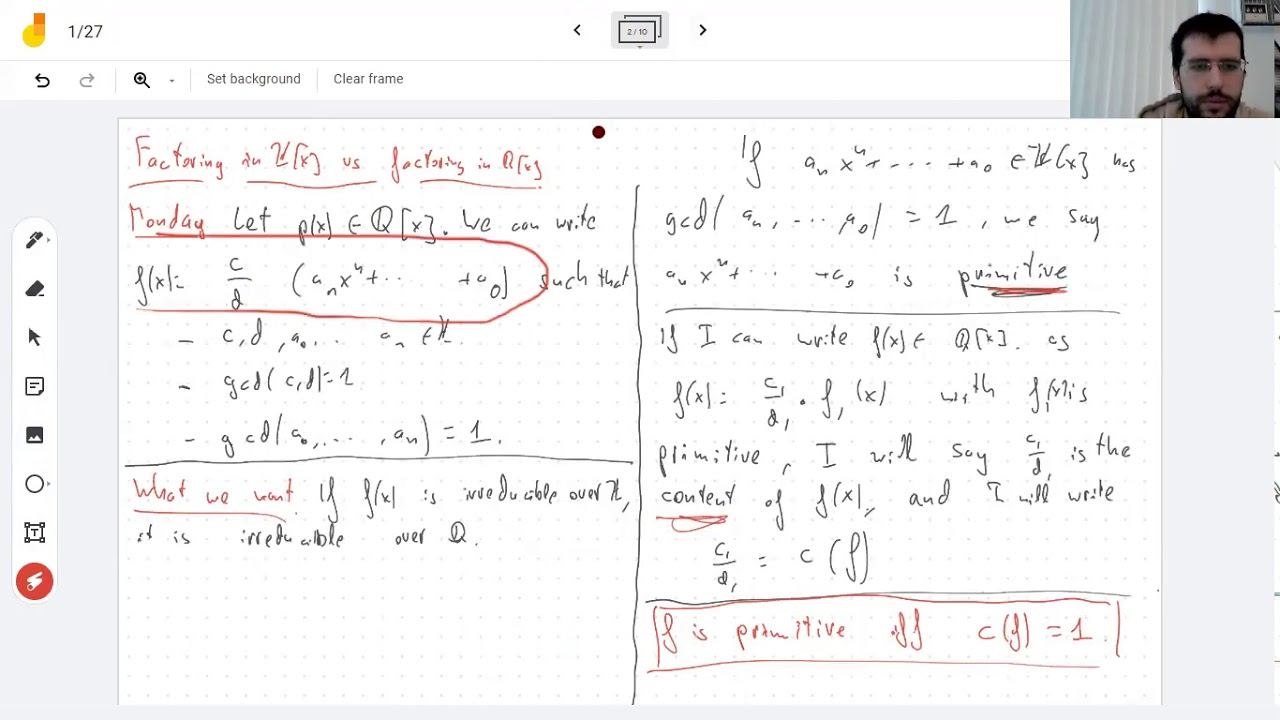 1/27
2 / 10
Set background
Clear frame
Factoring in ℤ[x] vs factoring in ℚ[x]
Monday Let p(x) ∈ ℚ[x]. We can write
f(x)= c/d (aₙxⁿ+ ⋯ +a₀) such that
- c,d, a₀... aₙ ∈ ℤ.
- gcd(c,d)=1
- gcd(a₀, ..., aₙ) = 1.
What we want. If f(x) is irreducible over ℤ,
it is irreducible over ℚ.
If aₙxⁿ+ ⋯ +a₀ ∈ ℤ[x] has
gcd(aₙ, ..., a₀) = 1, we say
aₙxⁿ+ ⋯ +a₀ is primitive
If I can write f(x) ∈ ℚ[x]. as
f(x)= c₁/d₁ · f₁(x) with f₁(x) is
primitive, I will say c₁/d₁ is the
content of f(x), and I will write
c₁/d₁ = c(f)
f is primitive iff c(f) = 1.